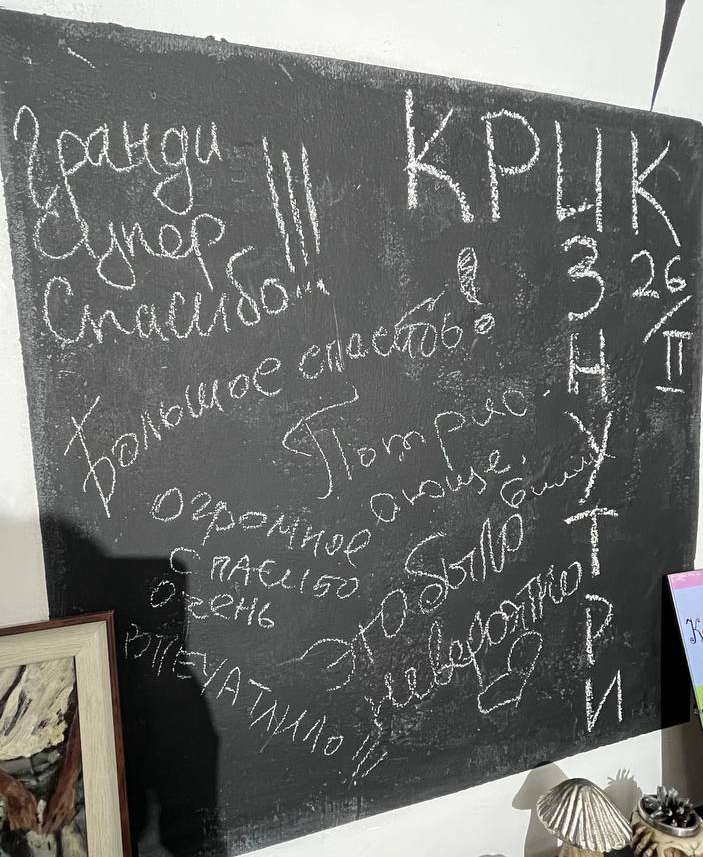 Гранди
Супер
Спасибо!!!
КРИК
ИЗНУТРИ
26/II
Большое спасибо!
Потряс
ающе.
Огромное
спасибо
очень
впечатлило!!
Это было
невероятно